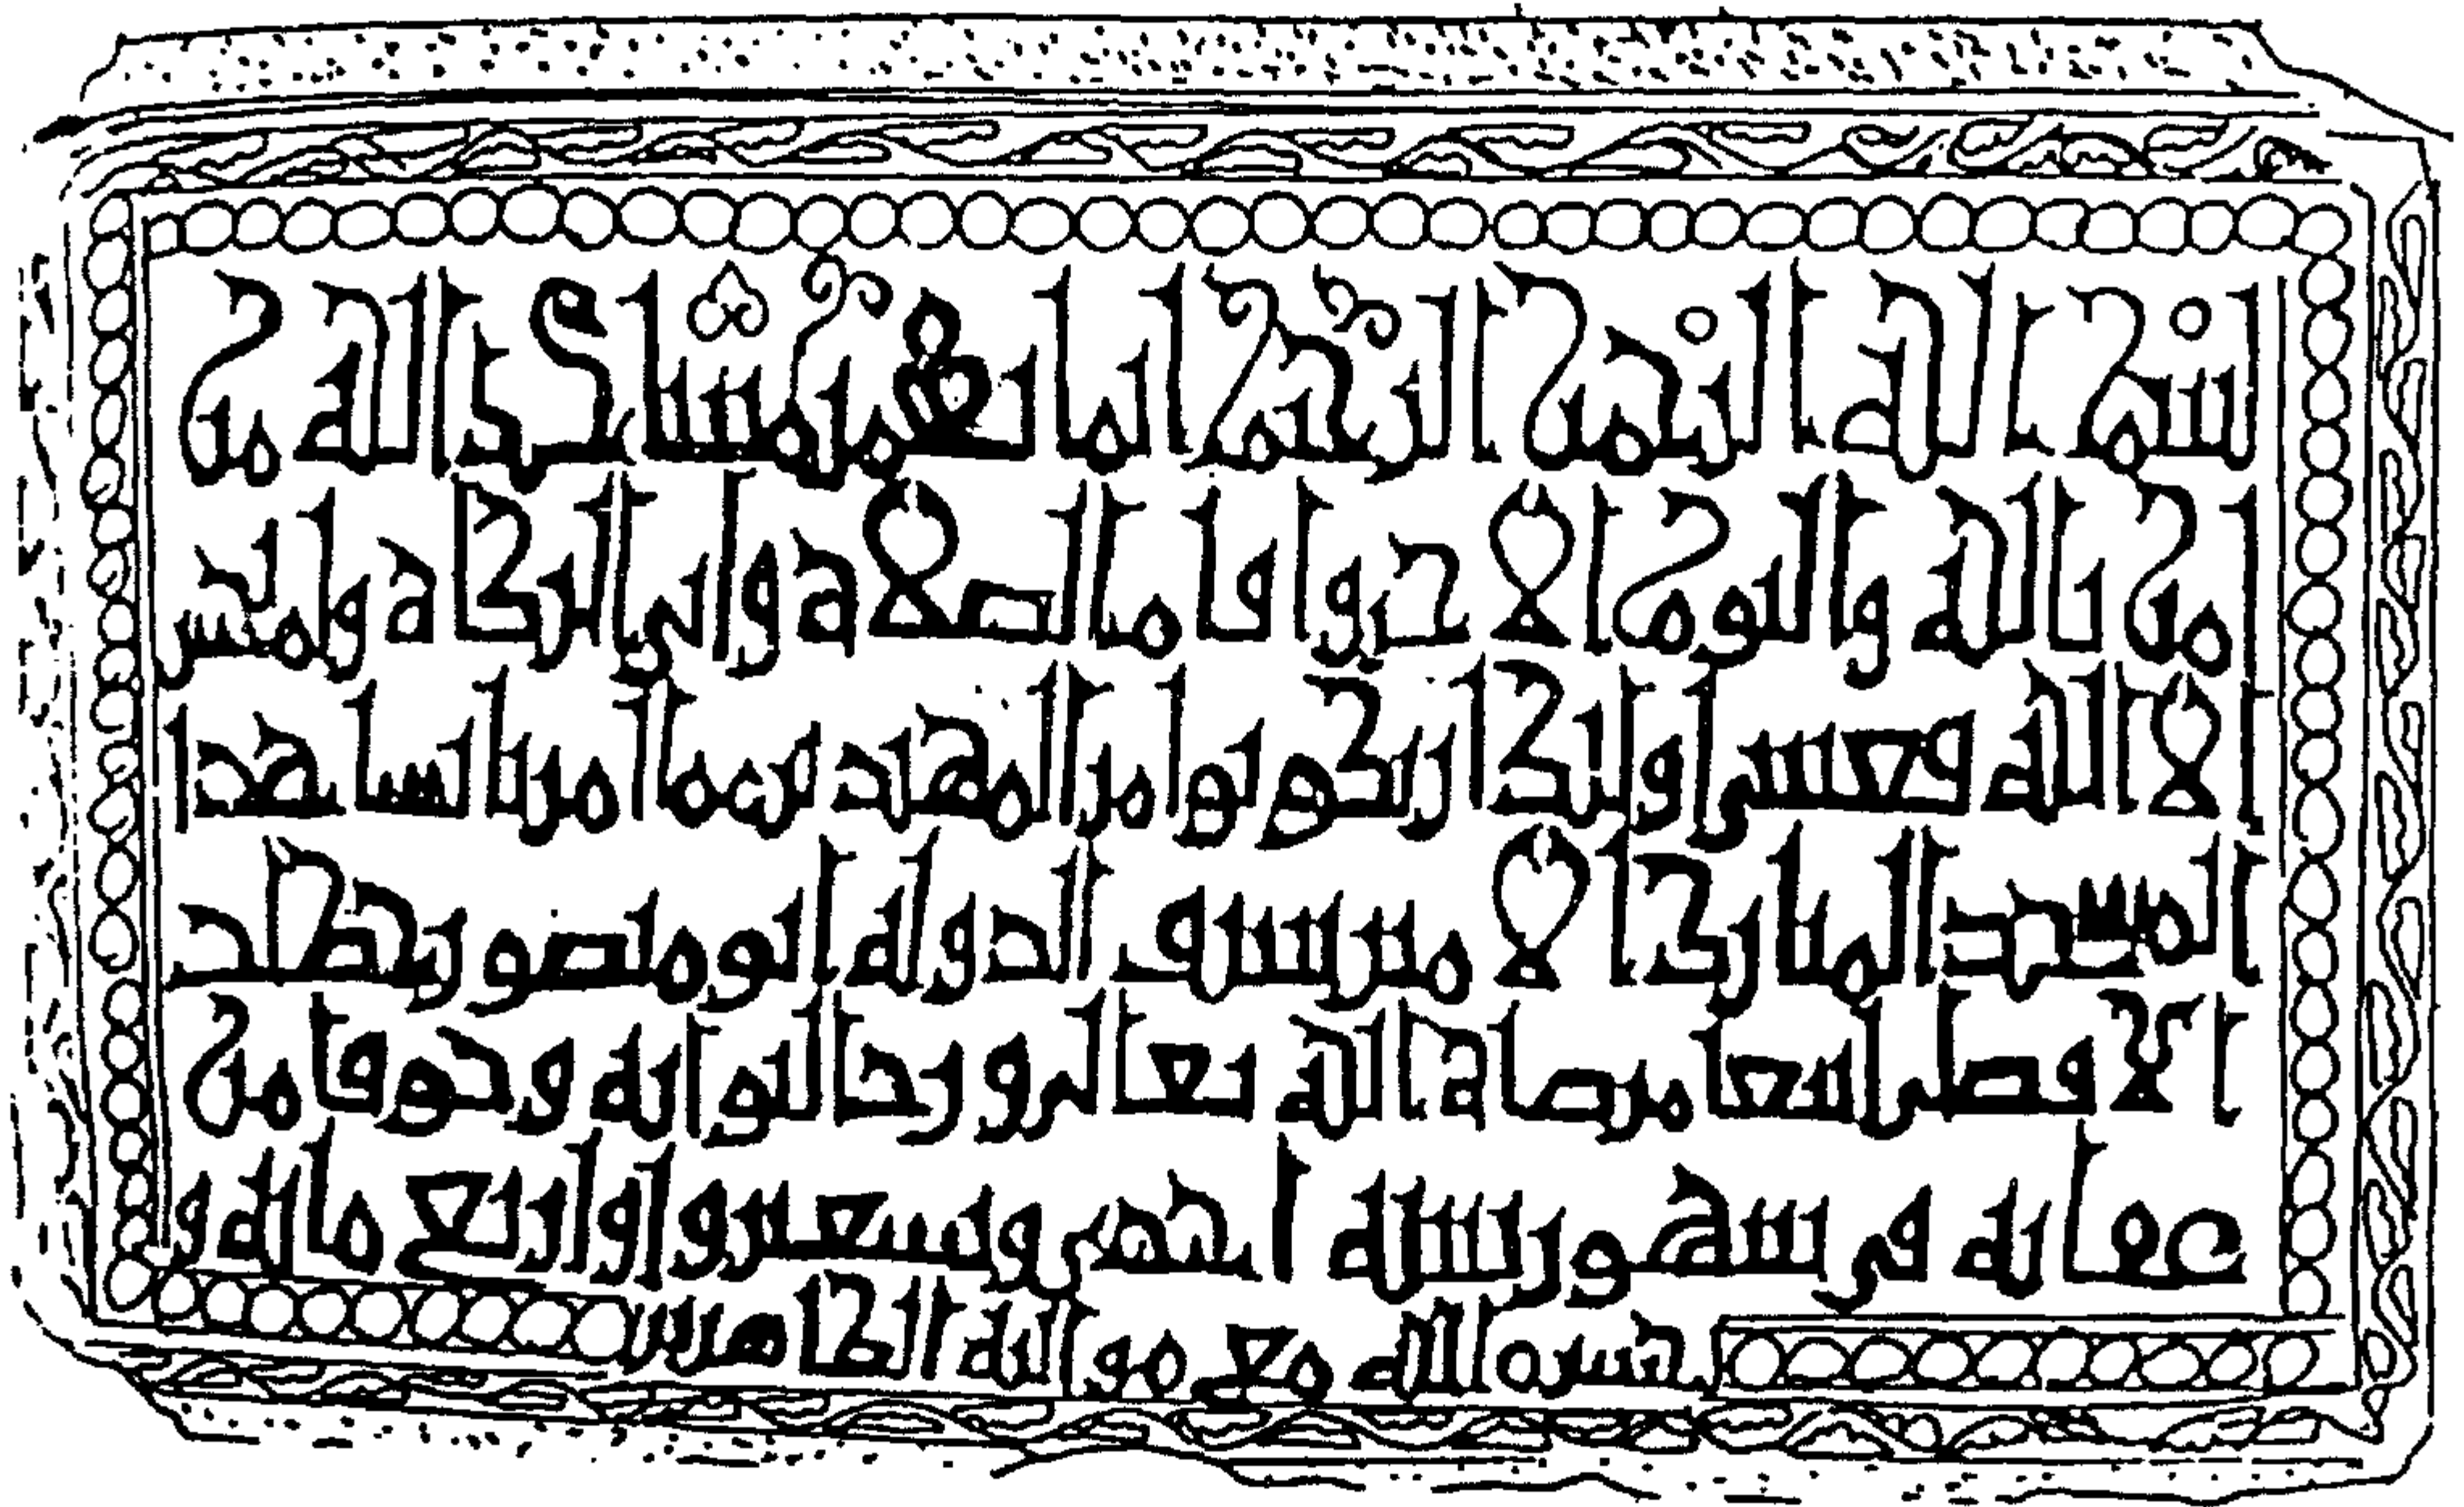 بسم الله الرحمن الرحيم انما يعمر مساجد الله من
امن بالله واليوم الاخر واقام الصلاة واتى الزكاة ولم يخش
الا الله فعسى اولئك ان يكونوا من المهتدين مما امر بانشا هذا
المسجد المبارك الامير سيف الدولة ابو منصور
الافضلي ابتغا مرضاة الله تعالى ورجا لثوابه وخوفا من
عقابه في شهور سنة احدى وتسعين واربع مائة و
حشره الله مع مواليه الطاهرين